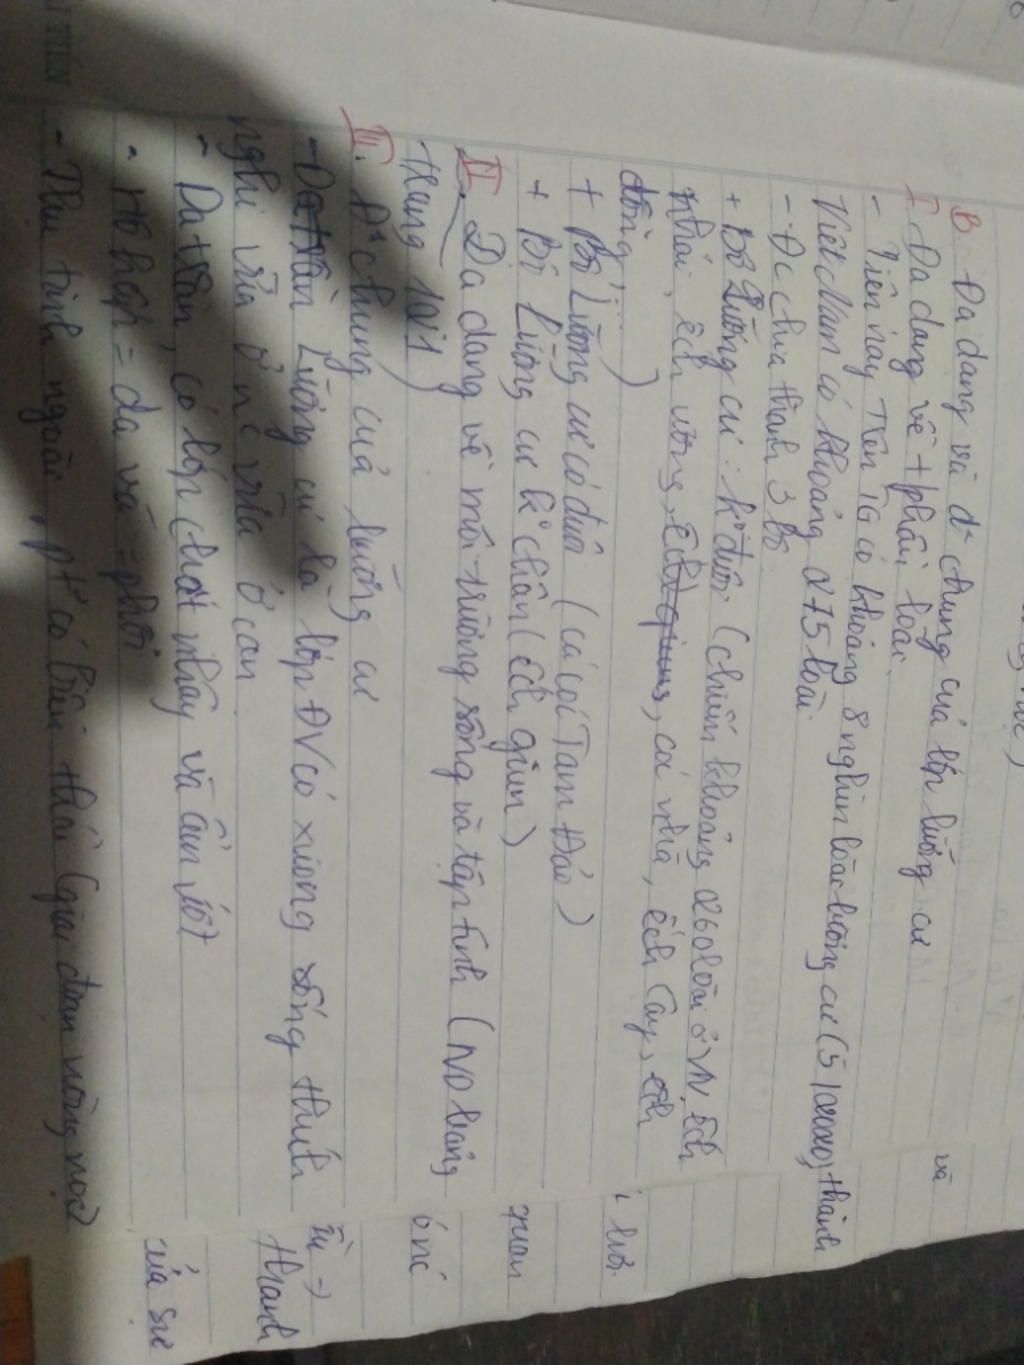 B. Đa dạng và đ² chung của lớp lưỡng cư
I. Đa dạng về tphần loài.
- Hiện nay trên TG có khoảng 8 nghìn loài lưỡng cư (5/2020), thành
Việt Nam có khoảng 275 loài.
- Đc chia thành 3 bộ.
+ Bộ Lưỡng cư: k° đuôi (chiếm khoảng 260 loài ở VN, ếch
nhái, ếch ương, cá nhà, ếch cây, ếch
đồng)
+ Bộ Lưỡng cư có đuôi (cá cóc Tam Đảo)
+ Bộ Lưỡng cư k° chân (ếch giun)
II. Đa dạng về môi trường sống và tập tính (ND bảng
trang 121)
III. Đ² chung của lưỡng cư
- Lưỡng cư là lớp ĐV có xương sống thích
nghi vừa ở nc vừa ở cạn.
- Da trần, có lớp chất nhầy và ẩm ướt
- Hô hấp = da và = phổi
- Thụ tinh ngoài, pt² có biến thái (giai đoạn nòng nọc)
và
xuan
ónc
thanh
của sự